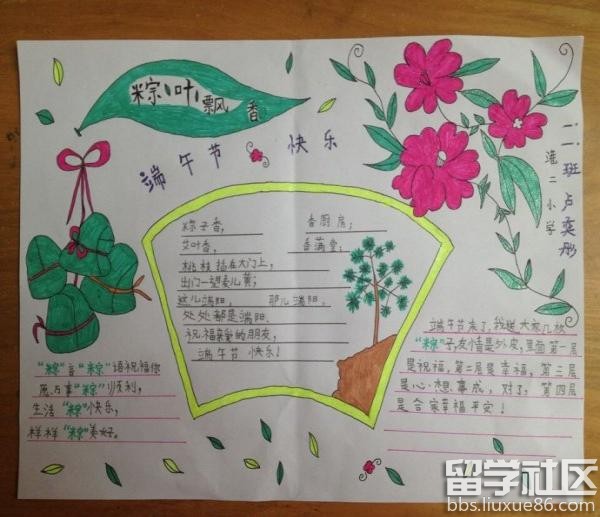 粽叶飘香
端午节 快乐
二一班 卢奕彤
淮二小学
粽子香， 香厨房；
艾叶香， 香满堂；
桃枝插在大门上，
出门一望麦儿黄；
这儿端阳， 那儿端阳，
处处都是端阳。
祝福亲爱的朋友，
端午节 快乐！
"粽"言"粽"语祝福你
愿万事"粽"顺利，
生活"粽"快乐，
样样"粽"美好。
端午节来了，我送大家几枚
"粽"子，友情是外皮，里面第一层
是祝福，第二层是幸福，第三层
是心想事成，对了，第四层
是合家幸福平安！
留学社区
bbs.liuxue86.com